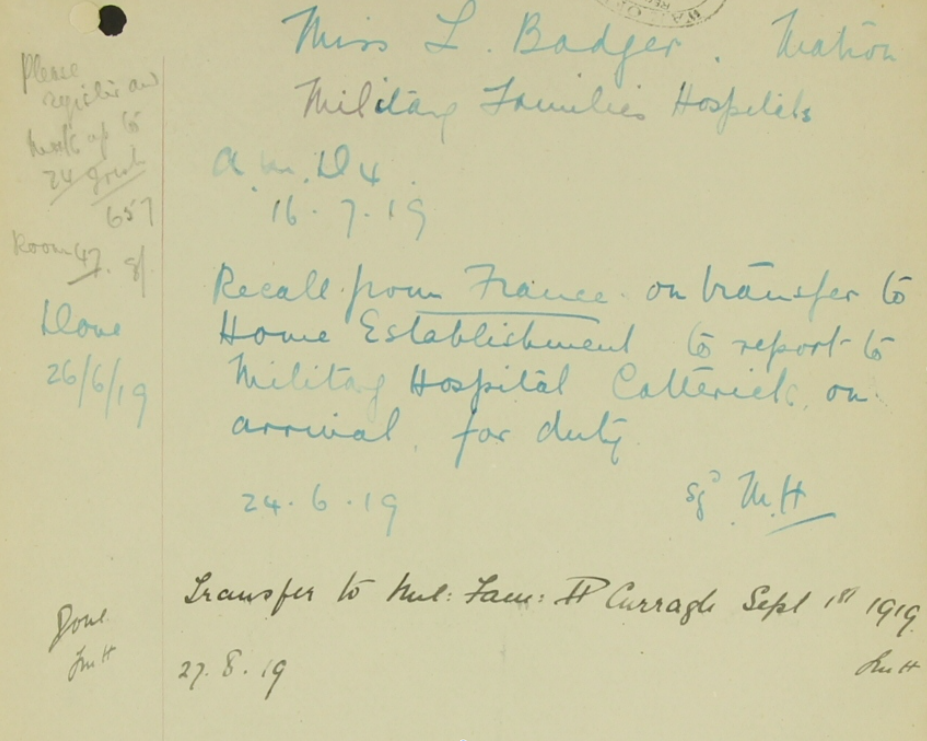 Miss L. Badger. Matron
Military Families Hospitals
A.M.D 4.
16.7.19
Please
register and
mark up to
657
Room 47.
Recall from France on transfer to
Home Establishment to report to
Military Hospital Catterick, on
arrival, for duty
Done
26/6/19
24.6.19
Sgd M.H
Transfer to Mil: Fam: H Curragh Sept 1st 1919.
Done
27.8.19